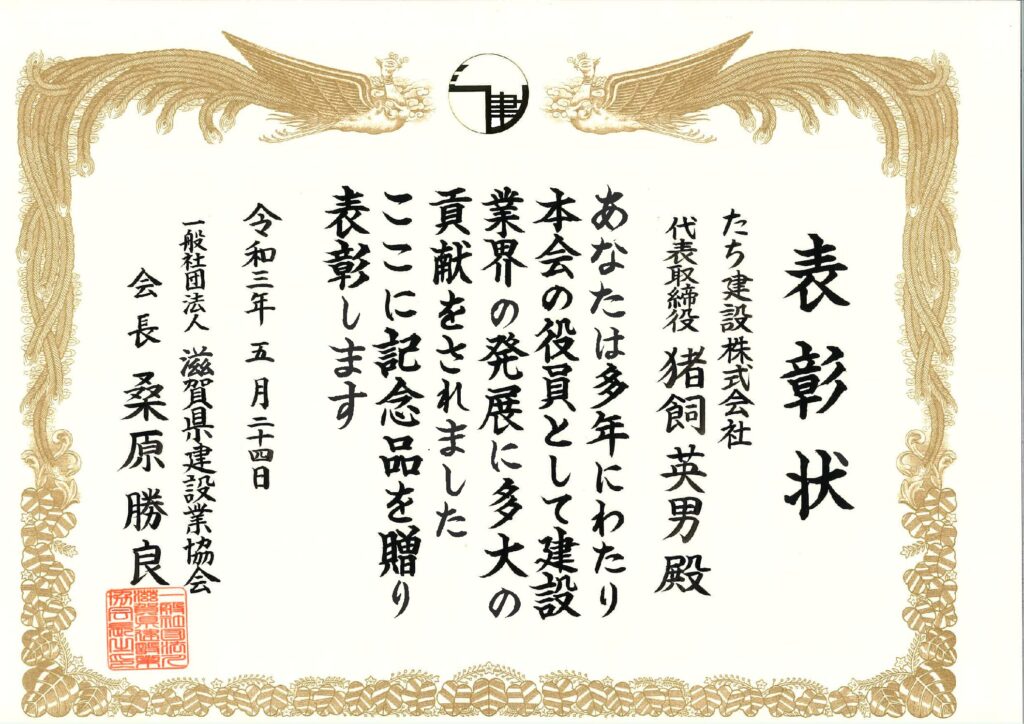 表彰状
たち建設株式会社
代表取締役 猪飼英男殿
あなたは多年にわたり
本会の役員として建設
業界の発展に多大の
貢献をされました
ここに記念品を贈り
表彰します
令和三年五月二十四日
一般社団法人 滋賀県建設業協会
会長 桑原勝良